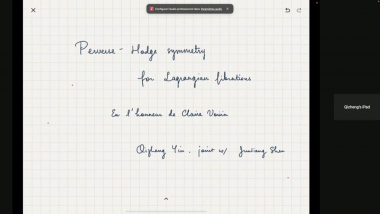 Perverse - Hodge symmetry
for Lagrangian fibrations
En l'honneur de Claire Voisin
Qizheng Yin. joint w/ Junliang Shen
Qizheng's iPad